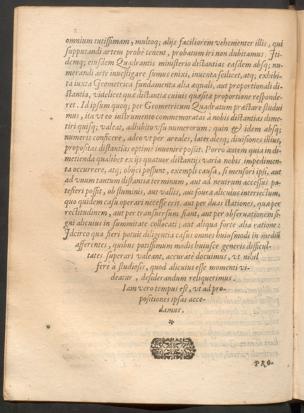 omnium tutissimam, multoq; alijs faciliorem vehementer illis, qui
supputandi artem probè tenent, probatum iri non dubitamus. Iti-
demq; eiusdem Quadrantis ministerio distantias easdem absq; nu-
merandi arte inuestigare summè enixi, inuenta scilicet, atq; exhibi-
ta iuxta Geometrica fundamenta alia æquali, aut proportionali di-
stantia, videlicet quæ distantiæ cuiuis quæsitæ proportione responde-
ret. Id ipsum quoq; per Geometricum Quadratum præstare studui
mus, ita vt eo instrumento commemoratas à nobis distantias dime-
tiri quisq; valeat, adhibito vsu numerorum: quin & idem absq;
numeris conficere, adeo vt per areales, laterdesq; diuisiones illius,
propositas distantias optimè inuenire possit. Porro autem quia in di-
metienda qualibet ex ijs quatuor distantijs varia nobis impedimen-
ta occurrere, atq; obijci possunt, exempli causa, si mensori ipsi, aut
ad vnum tantum distantiæ terminum, aut ad neutrum accessus pa-
tefieri possit, ob fluminis, aut vallis, aut foueæ alicuius anfractum,
quo quidem casu operari necesse erit, aut per duas stationes, quæ per
rectitudinem, aut per transuersum fiant, aut per obseruationem si-
gni alicuius in summitate collocati, aut aliqua forte alia ratione:
Idcirco qua fieri potuit diligentia casus omnes huiusmodi in medium
afferentes, quibus potissimum modis huiusce generis difficul-
tates superari valeant, accuratè docuimus, vt nihil
ferè à studiosis, quod alicuius esse momenti vi-
deatur, desiderandum reliquerimus.
Iam vero tempus est, vt ad pro-
positiones ipsas acce-
damus.
*
PRO-